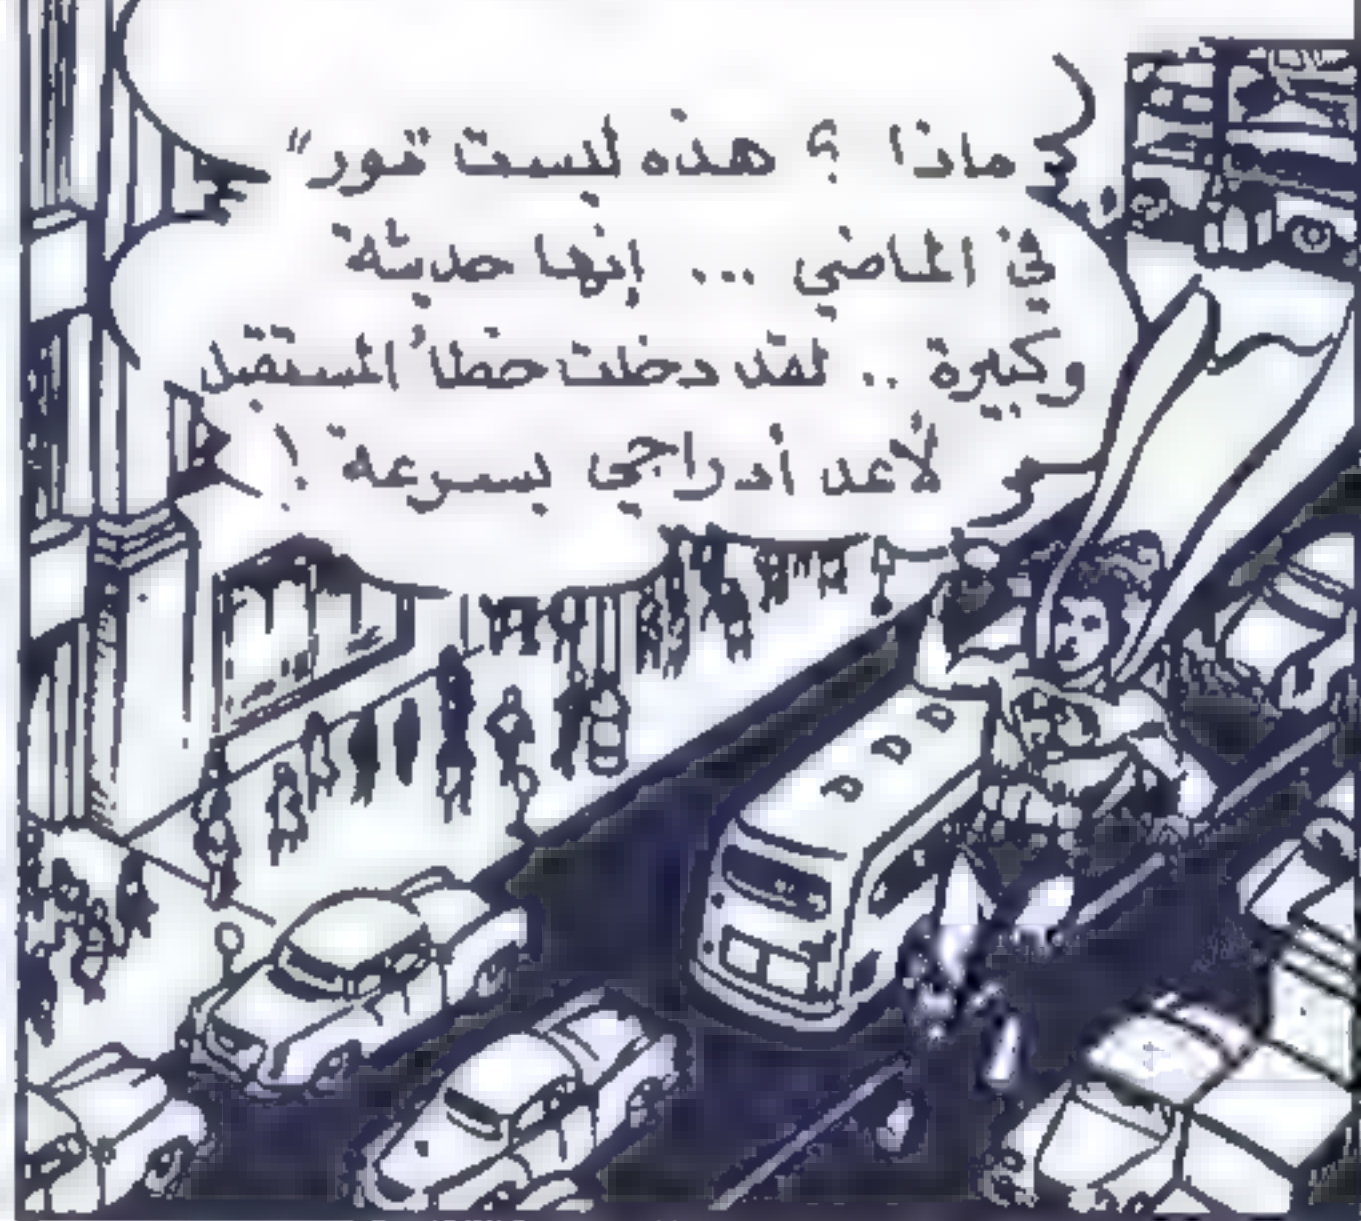 ماذا ؟ هذه ليست "تور"
في الماضي ... إنها حديثة
وكبيرة .. لقد دخلت خطأ المستقبل
لأعد أدراجي بسرعة !